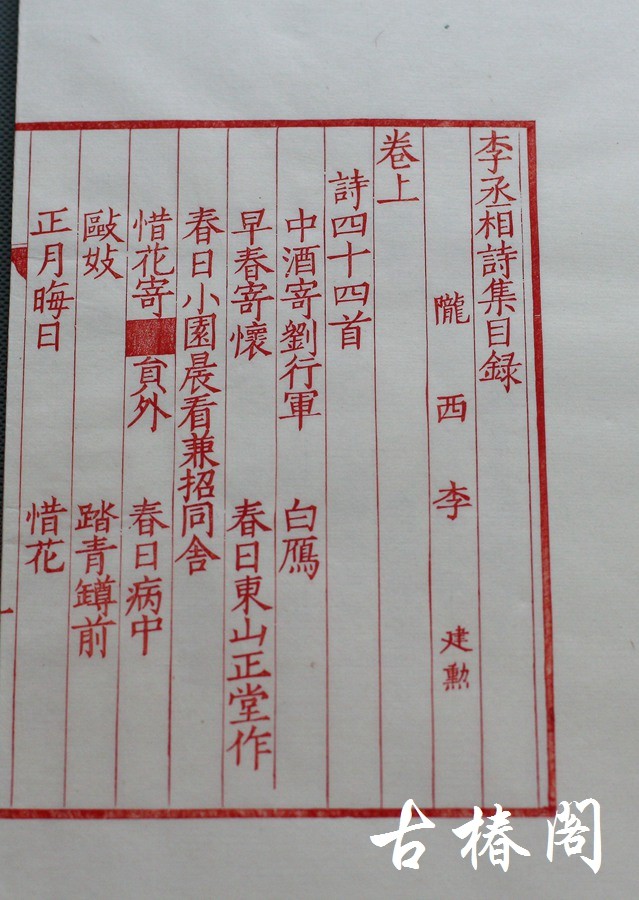 李丞相詩集目録
隴西李 建勲
卷上
詩四十四首
中酒寄劉行軍 白鴈
早春寄懷 春日東山正堂作
春日小園晨看兼招同舍
惜花寄■負外 春日病中
毆妓 踏青罇前
正月晦日 惜花
古椿閣